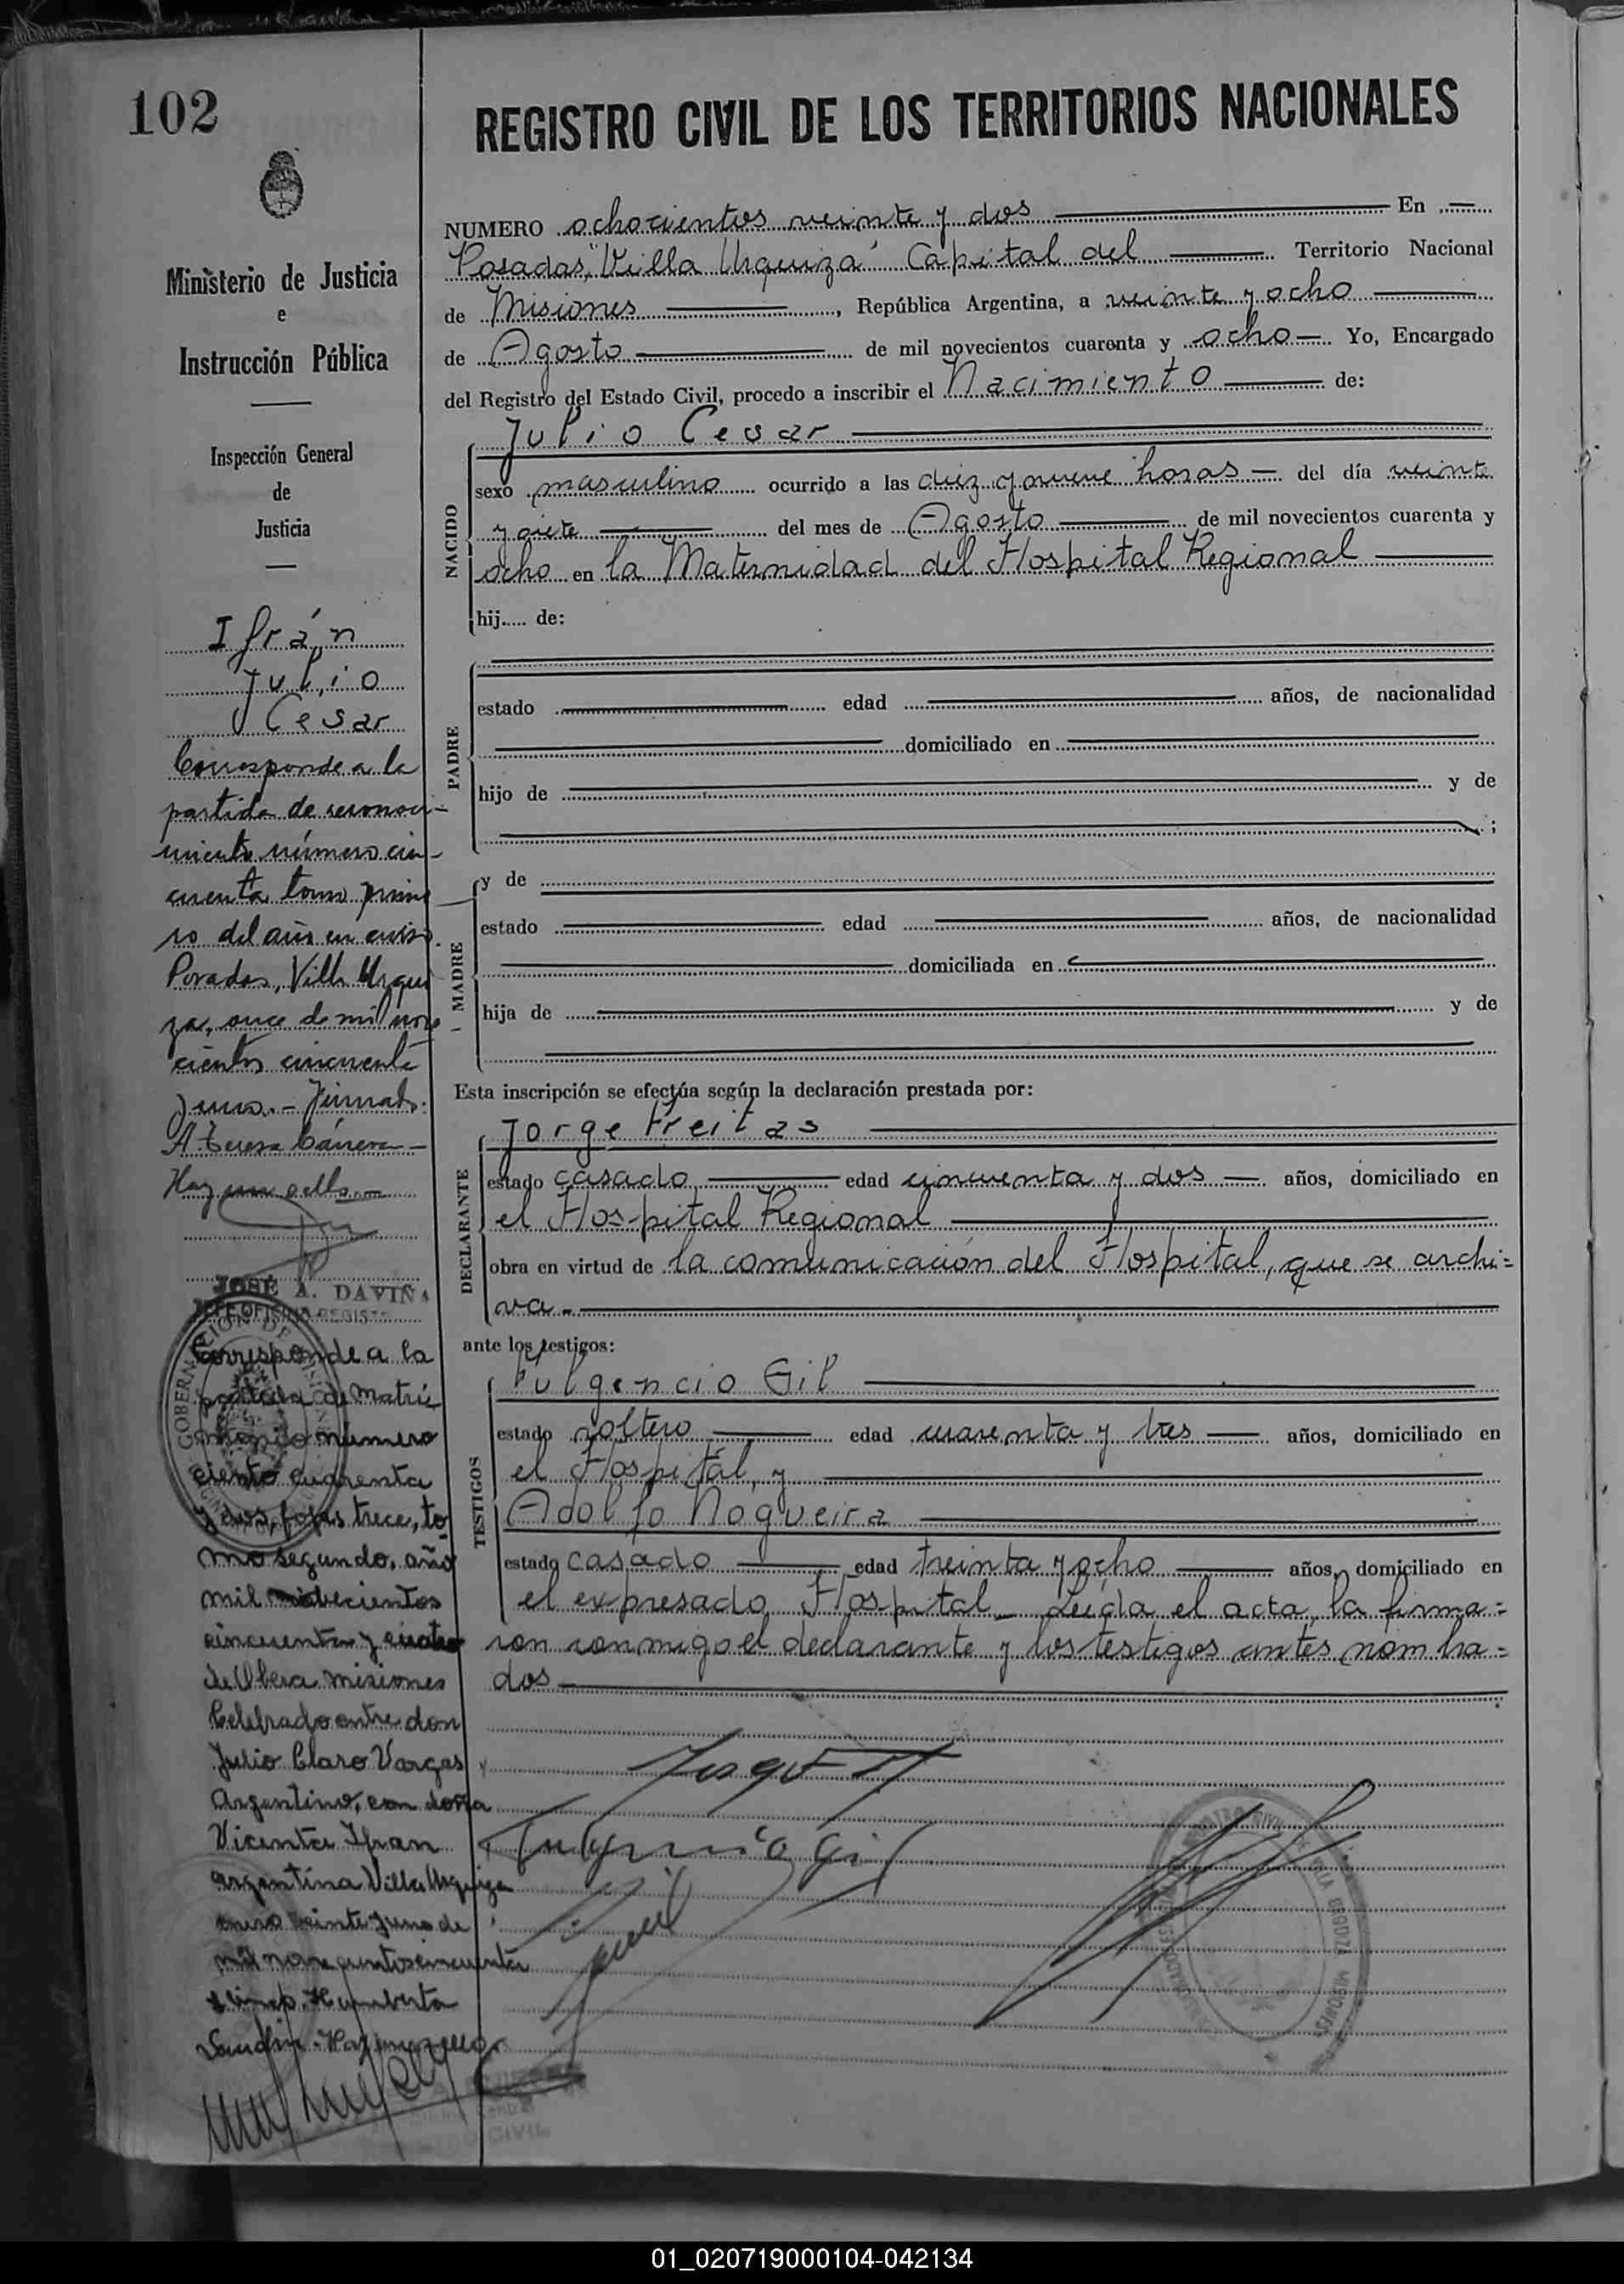 102
REGISTRO CIVIL DE LOS TERRITORIOS NACIONALES
Ministerio de Justicia
e
Instrucción Pública
Inspección General
de
Justicia
Ifrán
Julio
Cesar
Corresponde a la
partida de reconoci-
miento número cin-
cuenta tomo prime
ro del año en curso.
Posadas, Villa Urqui
za, once de mil nove
cientos cincuenta
y uno.- Firmado:
A. Teresa
Hay un sello.-
JOSÉ A. DAVIÑA
JEFE OFICINA REGIST
Corresponde a la
partida de Matri
monio número
ciento cuarenta
y dos, fojas trece, to
mo segundo, año
mil novecientos
cincuenta y cuatro
de Obera misiones
Celebrado entre don
Julio Claro Vargas
Argentino, con doña
Vicenta Ifran
argentina Villa Urquiza
enero veinte y uno de
mil novecientos cincuenta
Humberto
NUMERO ochocientos veinte y dos En
Posadas, "Villa Urquiza" Capital del Territorio Nacional
de Misiones , República Argentina, a veinte y ocho
de Agosto de mil novecientos cuarenta y ocho Yo, Encargado
del Registro del Estado Civil, procedo a inscribir el Nacimiento de:
NACIDO
Julio Cesar
sexo masculino ocurrido a las diez y nueve horas del día veinte
y siete del mes de Agosto de mil novecientos cuarenta y
ocho en la Maternidad del Hospital Regional
hij..... de:
PADRE
estado edad años, de nacionalidad
domiciliado en
hijo de y de
;
MADRE
y de
estado edad años, de nacionalidad
domiciliada en
hija de y de
Esta inscripción se efectúa según la declaración prestada por:
DECLARANTE
Jorge Freitas
estado casado edad cincuenta y dos años, domiciliado en
el Hospital Regional
obra en virtud de la comunicación del Hospital, que se archi=
va.
ante los testigos:
TESTIGOS
Fulgencio Gil
estado soltero edad cuarenta y tres años, domiciliado en
el Hospital, y
Adolfo Nogueira
estado casado edad treinta y ocho años, domiciliado en
el expresado Hospital. Leída el acta, la firma=
ron conmigo el declarante y los testigos antes nombra=
dos
Fulgencio Gil
01_020719000104-042134